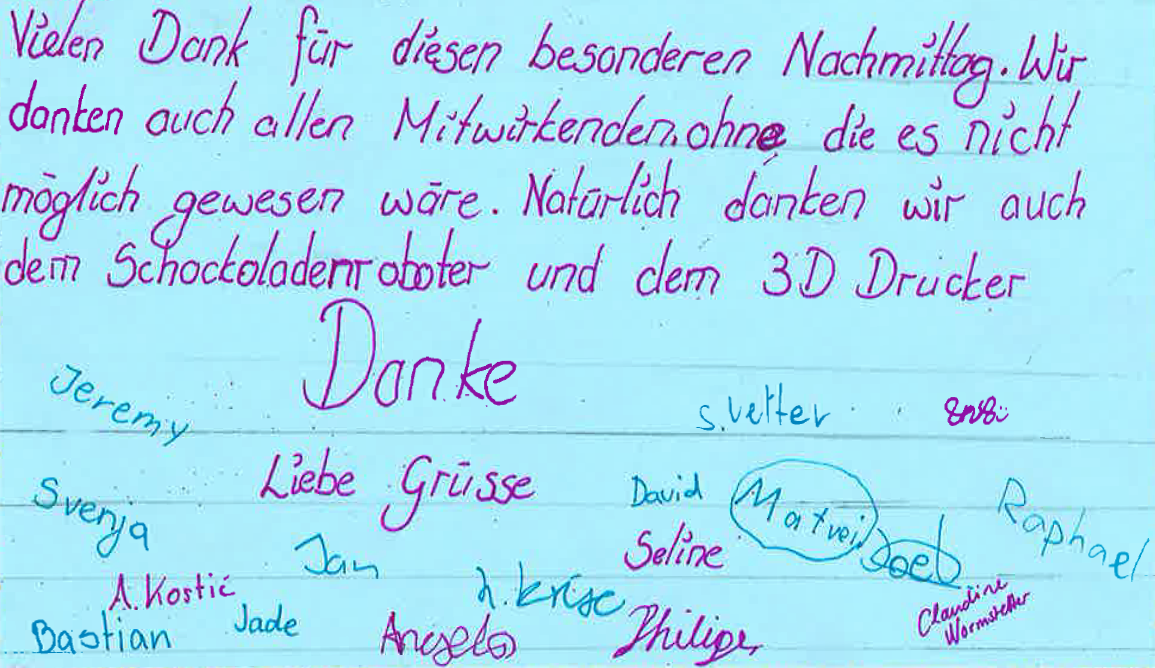 Vielen Dank für diesen besonderen Nachmittag. Wir
danken auch allen Mitwirkenden, ohne die es nicht
möglich gewesen wäre. Natürlich danken wir auch
dem Schockoladenroboter und dem 3D Drucker
Danke
Jeremy
S. Vetter
Liebe Grüsse
Svenja
David
Matvei
Raphael
Seline
Joel
Jan
A. Kostić
Claudine
Bastian
Jade
Angelo